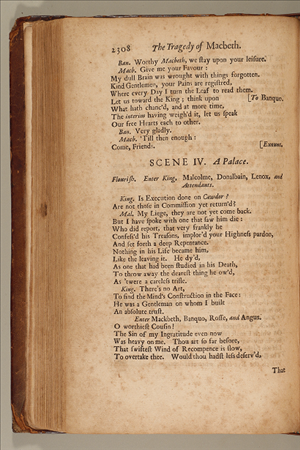 2308 The Tragedy of Macbeth.
Ban. Worthy Macbeth, we stay upon your leisure.
Mach. Give me your Favour:
My dull Brain was wrought with things forgotten.
Kind Gentlemen, your Pains are registred,
Where every Day I turn the Leaf to read them.
Let us toward the King; think upon [To Banquo.
What hath chanc'd, and at more time,
The interim having weigh'd it, let us speak
Our free Hearts each to other.
Ban. Very gladly.
Mach. 'Till then enough:
Come, Friends. [Exeunt.
SCENE IV. A Palace.
Flourish. Enter King, Malcolme, Donalbain, Lenox, and
Attendants.
King. Is Execution done on Cawdor?
Are not those in Commission yet return'd?
Mal. My Liege, they are not yet come back.
But I have spoke with one that saw him die:
Who did report, that very frankly he
Confess'd his Treasons, implor'd your Highness pardon,
And set forth a deep Repentance.
Nothing in his Life became him,
Like the leaving it. He dy'd,
As one that had been studied in his Death,
To throw away the dearest thing he ow'd,
As 'twere a careless trifle.
King. There's no Art,
To find the Mind's Construction in the Face:
He was a Gentleman on whom I built
An absolute trust.
Enter Mackbeth, Banquo, Rosse, and Angus.
O worthiest Cousin!
The Sin of my Ingratitude even now
Was heavy on me. Thou art so far before,
That swiftest Wind of Recompence is slow,
To overtake thee. Would thou hadst less deserv'd,
That